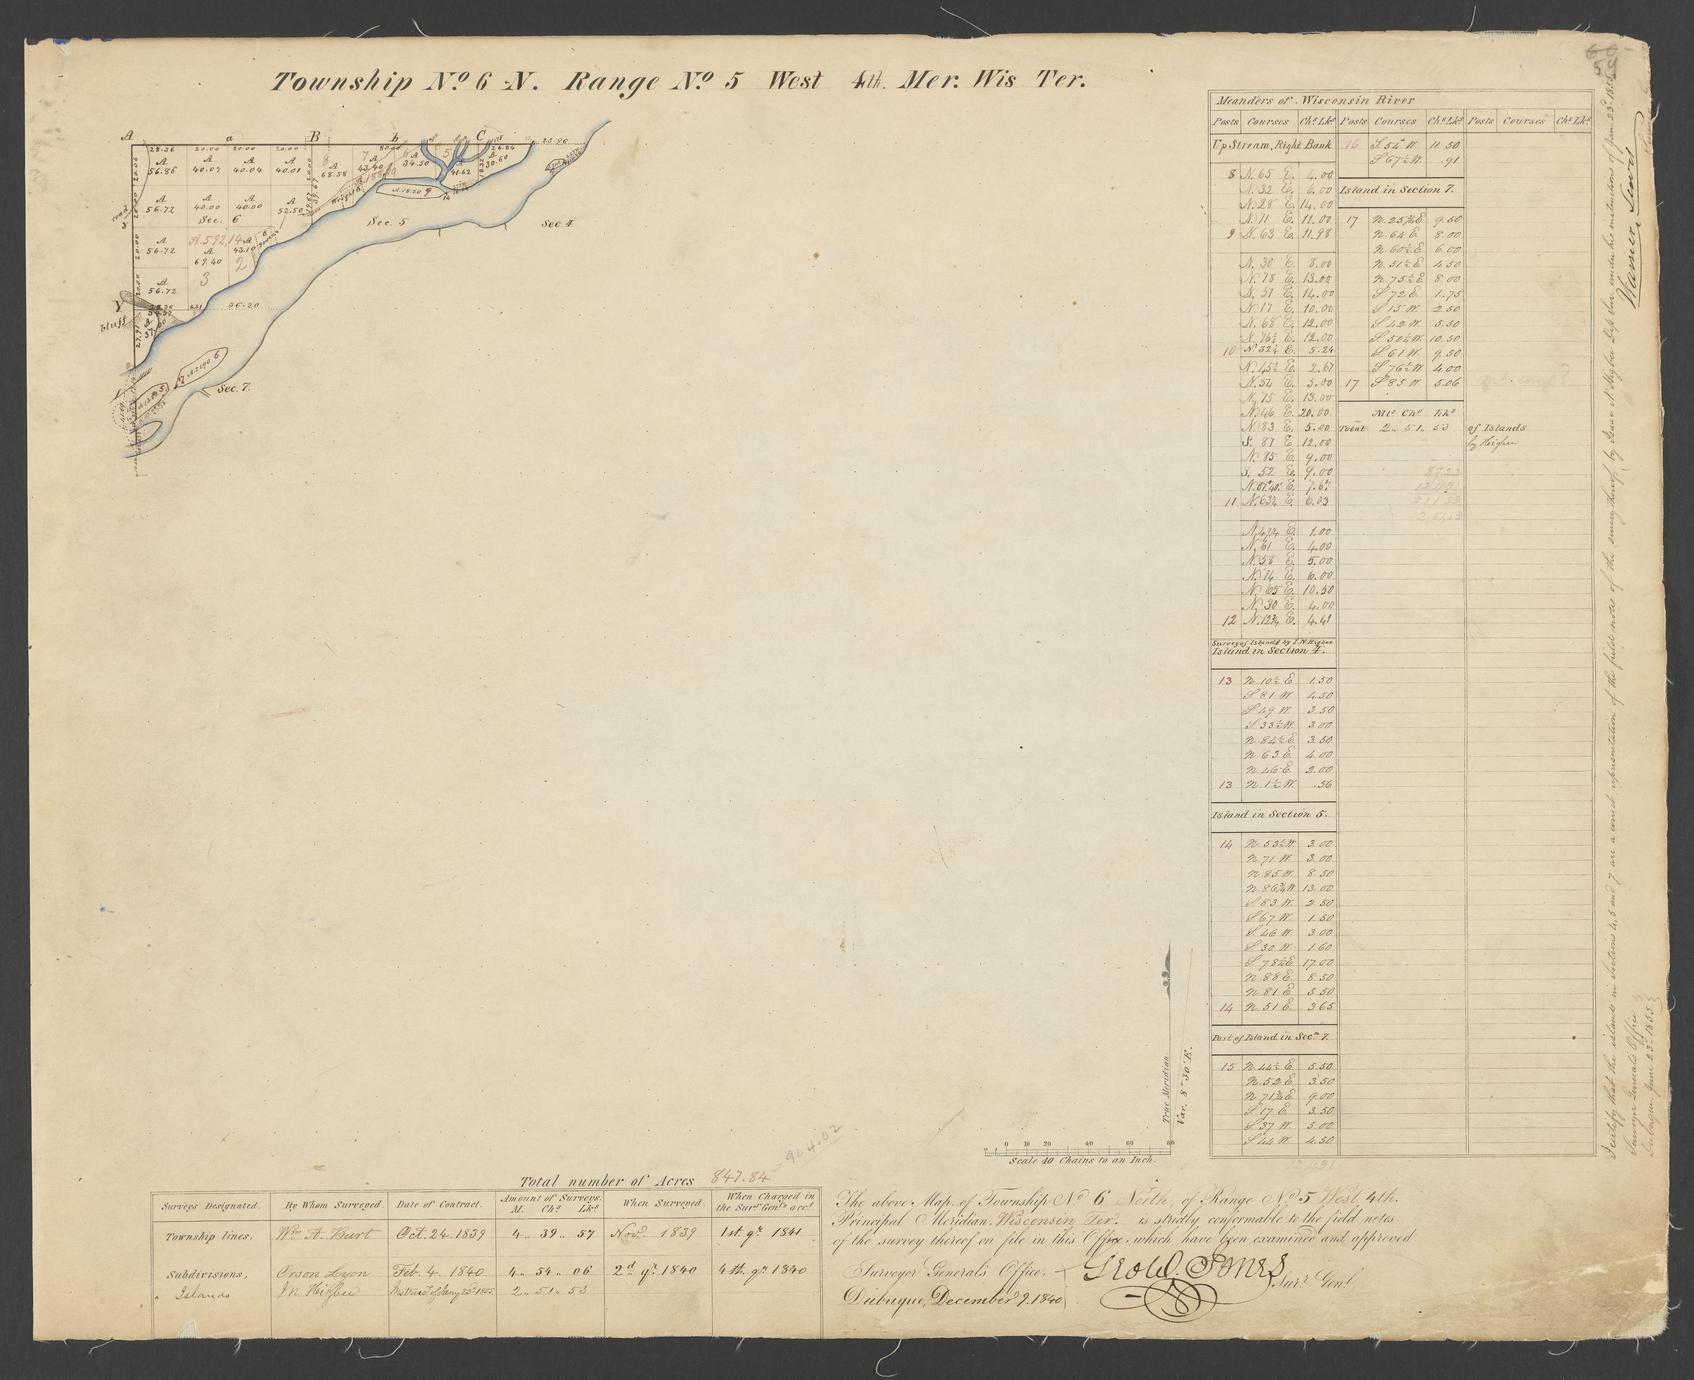 Township No 6 N. Range No 5 West 4th. Mer. Wis Ter.
A a B b C
28.36 20.00 20.00 20.00 26.84 25.90
A 56.86 A 40.07 A 40.04 A 40.01 A 68.58 A 43.40 A 34.50 A 41.62 A 30.60
A 56.72 A 40.00 A 40.00 A 52.50
Sec. 6
Sec. 5
Sec 4
A 56.72 A 69.40 A 43.10
A.592.14
3 2
A 56.72
Y
bluff
26.20
Sec. 7.
Meanders of Wisconsin River
Posts Courses Chs Lks Posts Courses Chs Lks Posts Courses Chs Lks
Up Stream, Right Bank
8 N. 65 E. 4.00
N. 32 E. 6.00
N. 28 E. 14.00
N. 11 E. 11.00
9 N. 63 E. 11.98
N. 30 E. 8.00
N. 78 E. 13.00
N. 37 E. 14.00
N. 17 E. 10.00
N. 68 E. 12.00
N. 76½ E. 12.00
10 N. 32½ E. 5.24
N. 45½ E. 2.67
N. 54 E. 5.00
N. 75 E. 13.00
N. 46 E. 20.00
N. 83 E. 5.00
S. 87 E. 12.00
N. 85 E. 9.00
S. 52 E. 9.00
11 N. 63¼ E. 6.03
N. 47¼ E. 1.00
N. 61 E. 4.00
N. 58 E. 5.00
N. 74 E. 6.00
N. 65 E. 10.50
N. 30 E. 4.00
12 N. 12¾ E. 4.48
Survey of Islands by I. N. Higbee
Island in Section 4.
13 N. 10½ E 1.50
S 81 W. 4.50
S 49 W. 3.50
S 33½ W. 3.00
N. 84½ E 3.50
N. 63 E. 4.00
N. 46 E. 2.00
13 N. 1½ W. .56
Island in Section 5.
14 N. 53½ W. 3.00
N. 71 W. 3.00
N. 85 W. 8.50
N. 86¾ W. 13.00
S 83 W. 2.50
S 67 W. 1.50
S 46 W. 3.00
S 30 W. 1.60
S 78¼ E 17.00
N. 88 E. 8.50
N. 81 E 5.50
14 N. 51 E. 3.65
Part of Island in Secn 7.
15 N. 44½ E 5.50
N. 52 E 3.50
N. 71¾ E 9.00
S 17 E 3.50
S 37 W. 5.00
S 44 W. 4.50
16 S 54 W. 11.50
S 67½ W. .91
Island in Section 7.
17 N. 25¾ E 9.50
N. 64 E 8.00
N. 60½ E 6.00
N. 51½ E 4.50
N. 75½ E 8.00
S 72 E 1.75
S 15 W. 2.50
S 42 W. 5.50
S 50½ W. 10.50
S 61 W. 9.50
S 76½ W. 4.00
17 S 85 W. 5.06
Mls Chs Lks
Total 2.. 51.. 53 of Islands
by Higbee
I certify that the islands in Sections 4, 5 and 7 are a correct representation of the field notes of the survey thereof, by Isaac N. Higbee Dep. Sur. under his instructions of Jan. 23d. 1855.
Surveyor General's Office
Dubuque June 23d. 1855
Warner Lewis
True Meridian
Var. 8° 30' E.
0 10 20 40 60 80
Scale 40 Chains to an Inch.
904.02
Total number of Acres 847.84
Surveys Designated. By Whom Surveyed. Date of Contract. Amount of Surveys. M. Chs Lks When Surveyed. When Charged in the Surr Genls acct
Township lines. Wm A. Burt Oct. 24. 1839 4.. 39.. 57 Novr 1839 1st. qr. 1841
Subdivisions, Orson Lyon Feb. 4. 1840 4.. 54.. 06 2d qr. 1840 4th. qr. 1840
" Islands I N Higbee Instrucs of Jany 23d. 1855 2.. 51.. 53
The above Map, of Township No 6 North, of Range No 5 West 4th.
Principal Meridian, Wisconsin Tery. is strictly conformable to the field notes
of the survey thereof on file in this Office, which have been examined and approved
Surveyor General's Office,
Dubuque, December 9. 1840
Geo W. Jones
Surr. Genl